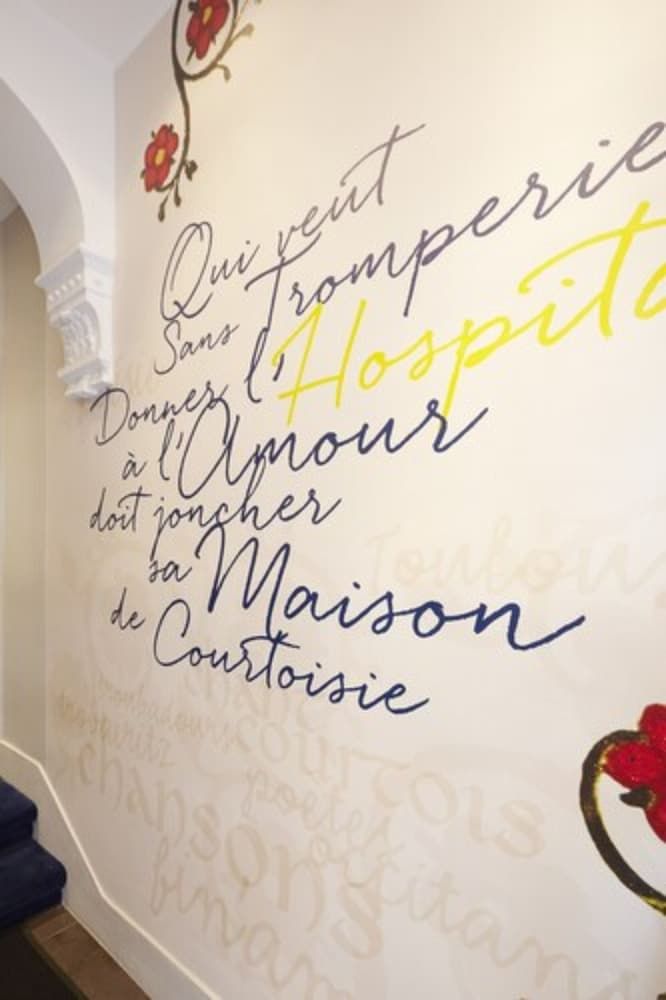 Qui veut
Sans Tromperie
Donner l'Hospita
à l'Amour
doit joncher
sa Maison
de Courtoisie
Toulou
troubadours
courtois
chansons
poetes
occitans